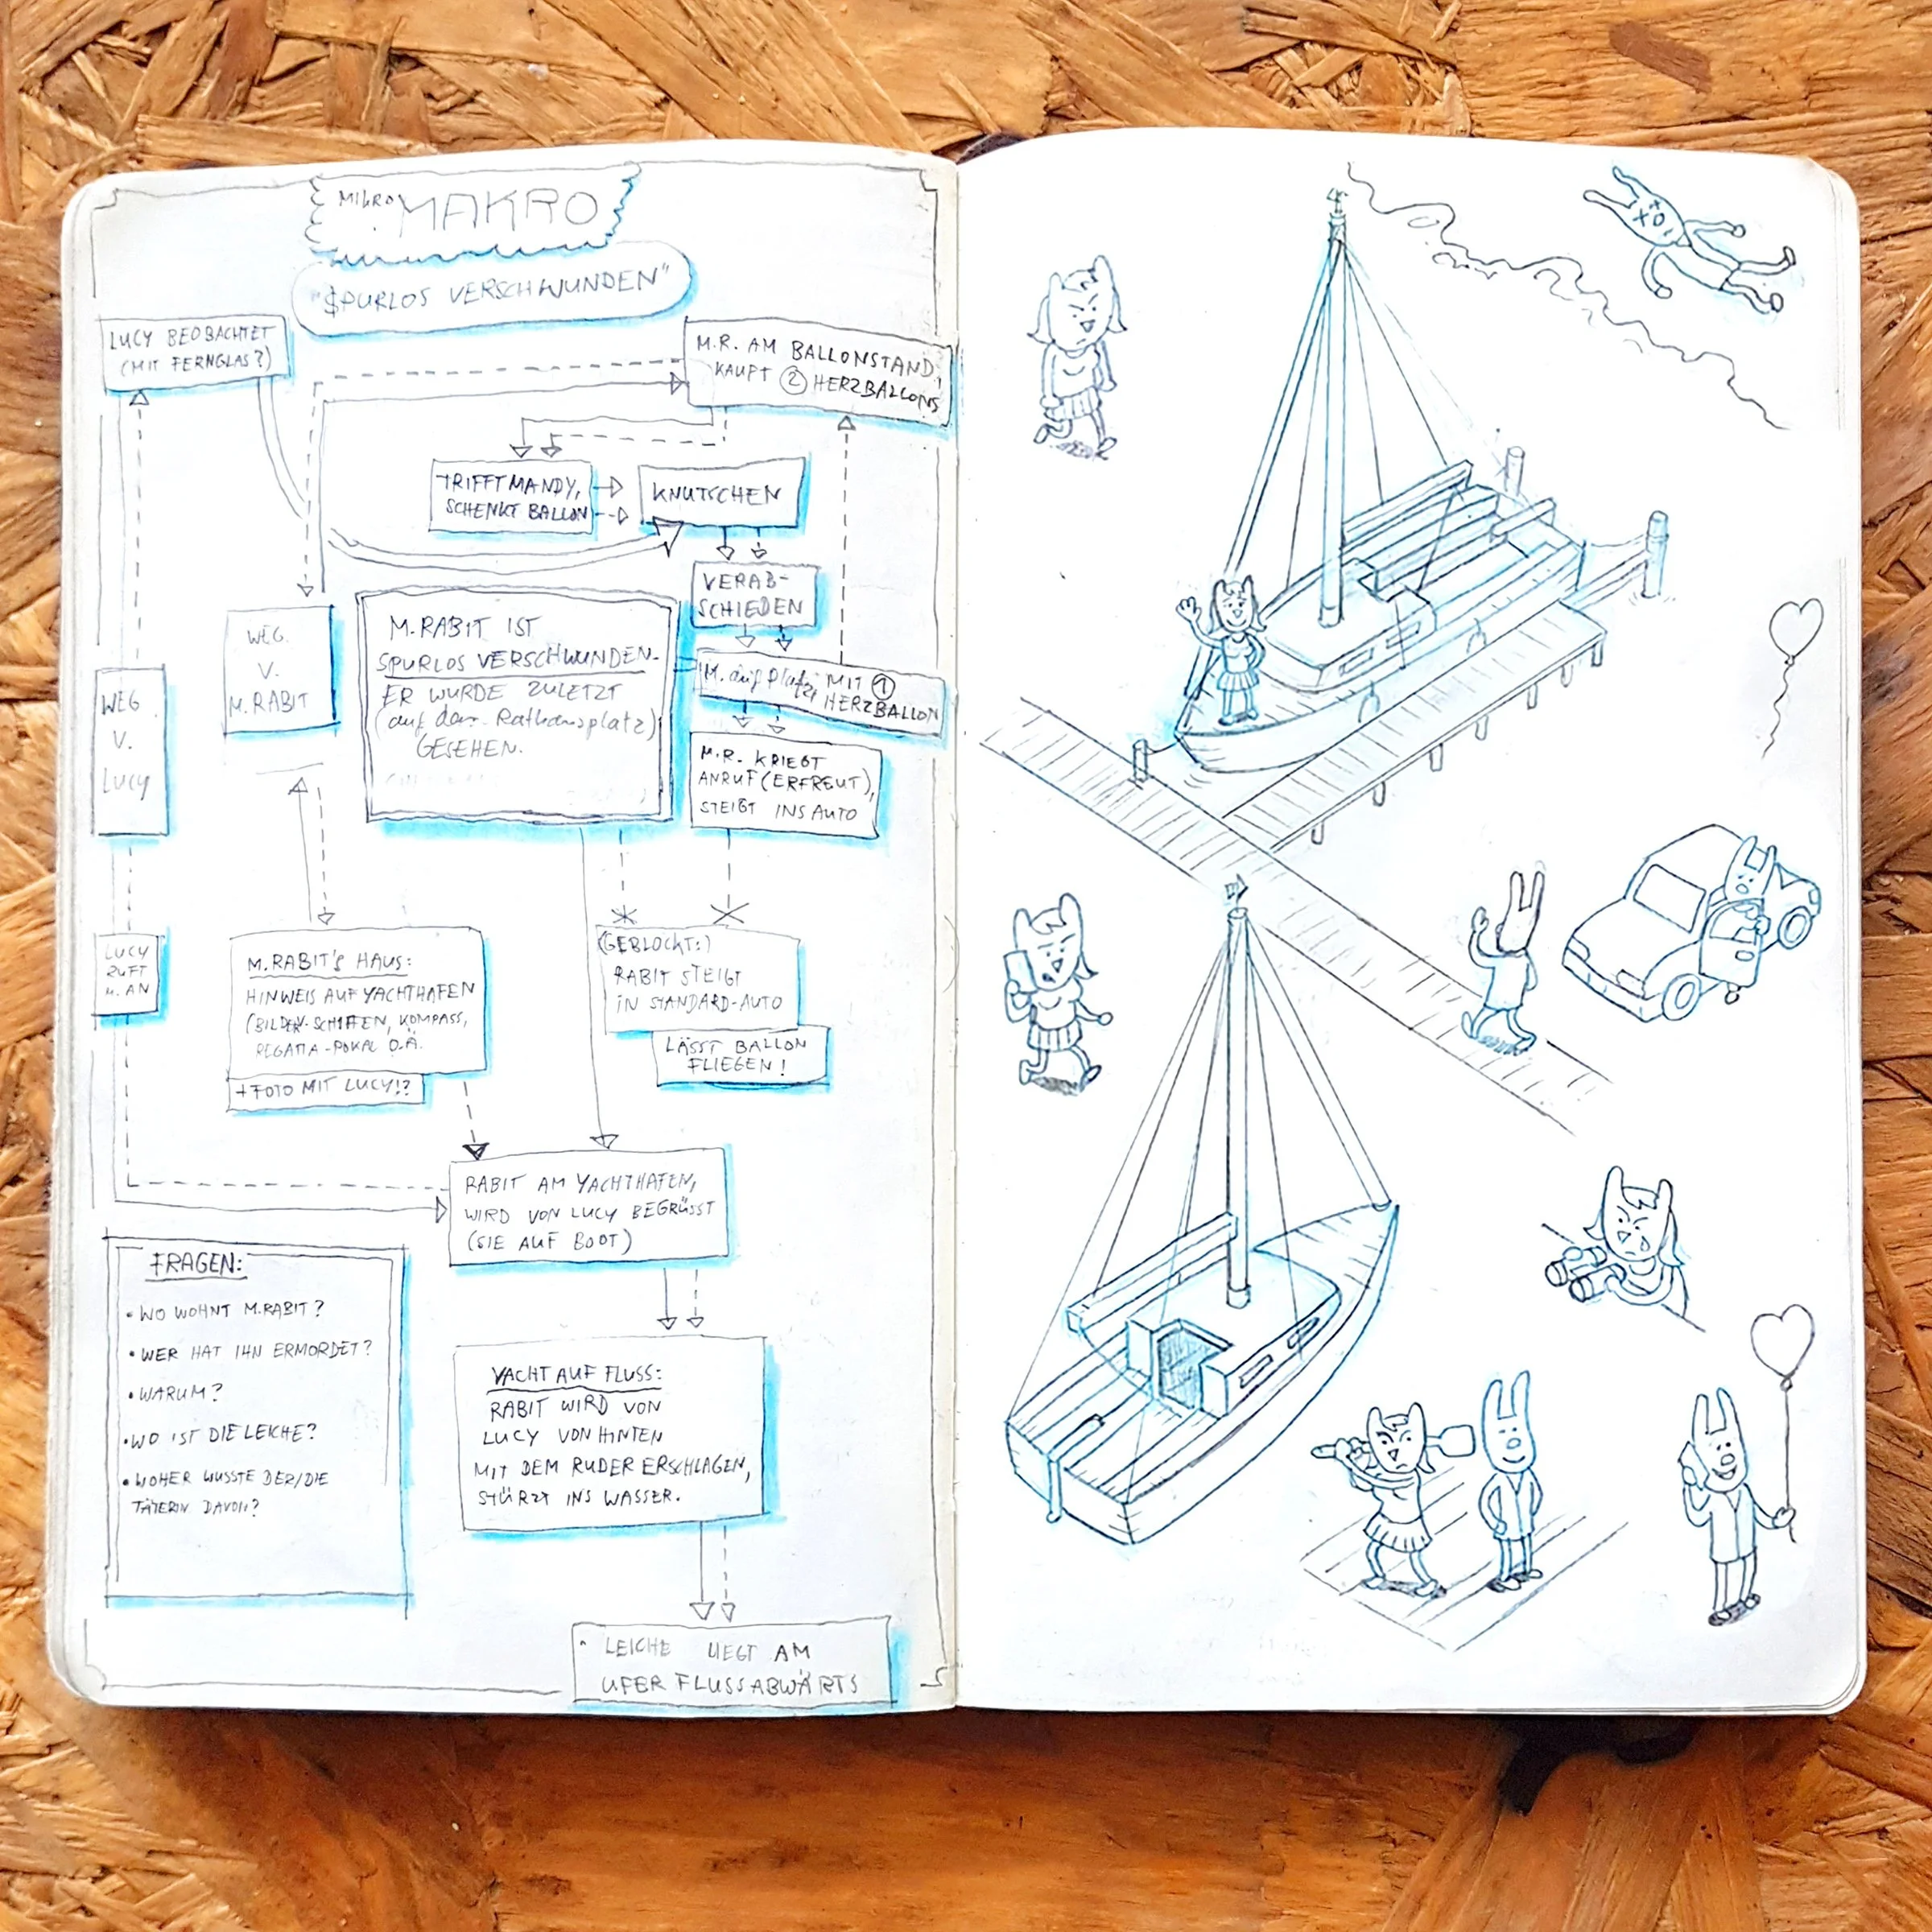 MIKRO MAKRO
"SPURLOS VERSCHWUNDEN"
LUCY BEOBACHTET
(MIT FERNGLAS?)
M.R. AM BALLONSTAND,
KAUPT 2 HERZBALLONS
TRIFFT MANDY,
SCHENKT BALLON
KNUTSCHEN
VERAB-
SCHIEDEN
M. auf Platz MIT 1
HERZBALLON
M.R. KRIEGT
ANRUF (ERFREUT),
STEIGT INS AUTO
WEG
V.
M.RABIT
M.RABIT IST
SPURLOS VERSCHWUNDEN.
ER WURDE ZULETZT
(auf dem Rathausplatz)
GESEHEN.
WEG
V.
LUCY
LUCY
RUFT
M. AN
M.RABIT'S HAUS:
HINWEIS AUF YACHTHAFEN
(BILDER-SCHIFFEN, KOMPASS,
REGATTA-POKAL O.Ä.
+FOTO MIT LUCY!?
(GEBLOCKT:)
RABIT STEIGT
IN STANDARD-AUTO
LÄSST BALLON
FLIEGEN!
RABIT AM YACHTHAFEN,
WIRD VON LUCY BEGRÜSST
(SIE AUF BOOT)
FRAGEN:
• WO WOHNT M.RABIT?
• WER HAT IHN ERMORDET?
• WARUM?
• WO IST DIE LEICHE?
• WOHER WUSSTE DER/DIE
TÄTERIN DAVON?
YACHT AUF FLUSS:
RABIT WIRD VON
LUCY VON HINTEN
MIT DEM RUDER ERSCHLAGEN,
STÜRZT INS WASSER.
LEICHE LIEGT AM
UFER FLUSSABWÄRTS